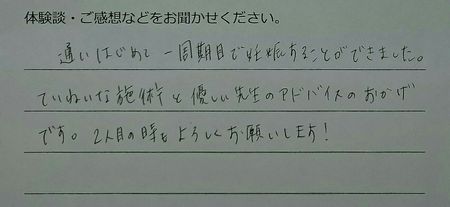 体験談・ご感想などをお聞かせください。
通いはじめて一周期目で妊娠することができました。
ていねいな施術と優しい先生のアドバイスのおかげ
です。2人目の時もよろしくお願いします!